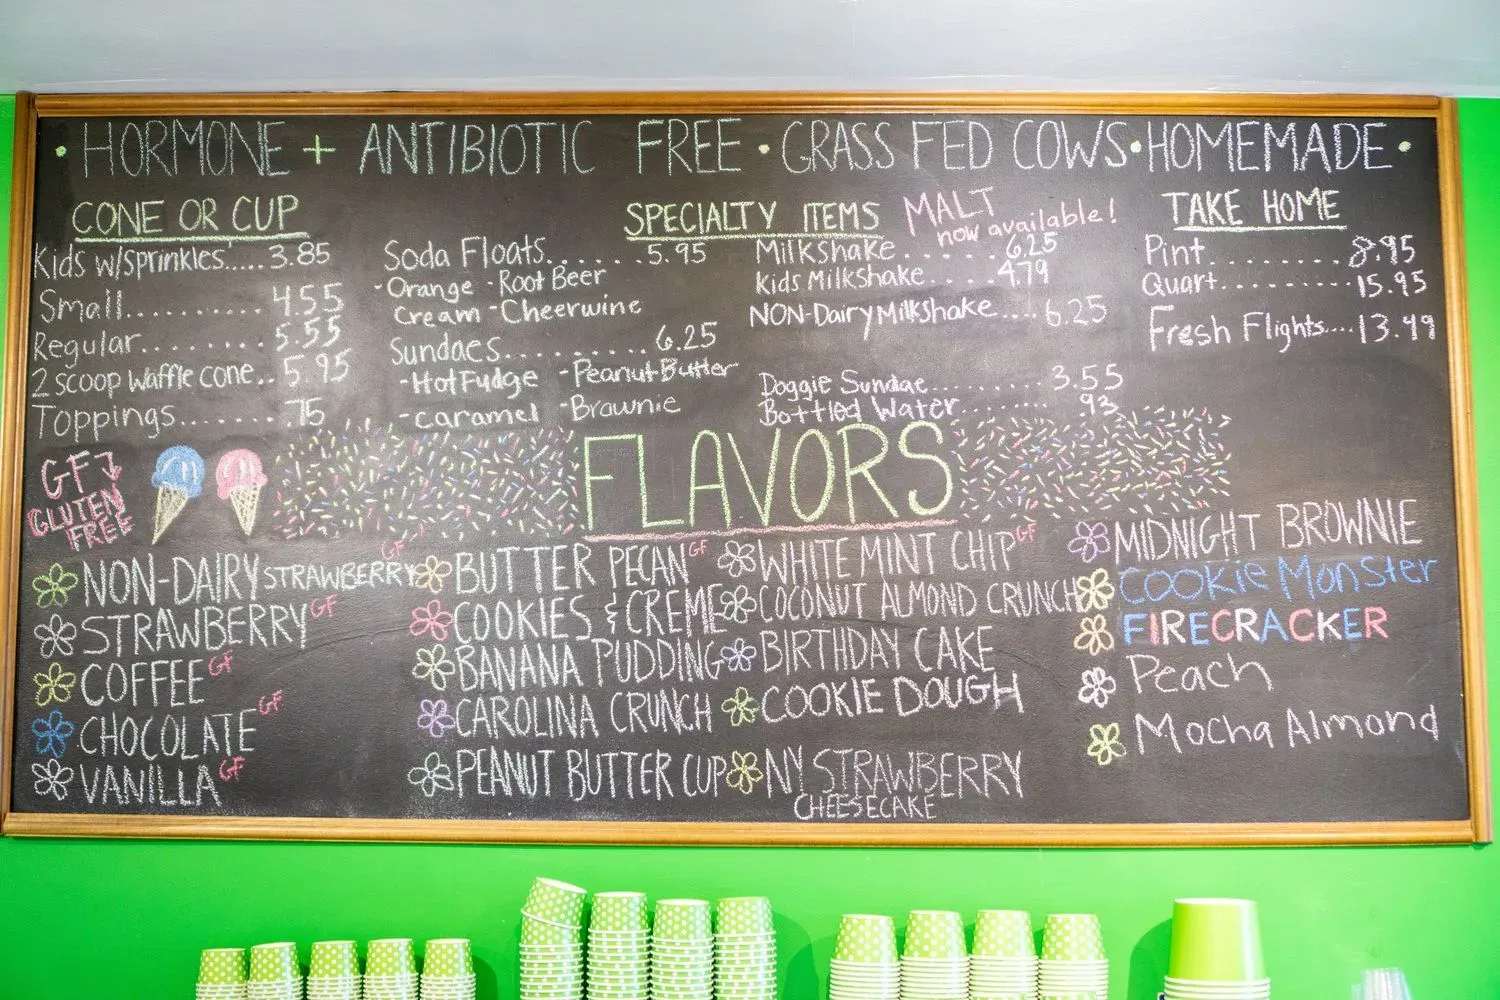 · HORMONE + ANTIBIOTIC FREE · GRASS FED COWS · HOMEMADE ·
CONE OR CUP
Kids w/sprinkles.....3.85
Small..........4.55
Regular........5.55
2 scoop Waffle cone..5.95
Toppings.......75
SPECIALTY ITEMS
Soda Floats.......5.95
-Orange -Root Beer
Cream -Cheerwine
Sundaes..........6.25
-Hot Fudge -Peanut Butter
-caramel -Brownie
MALT
now available!
Milkshake.......6.25
Kids Milkshake......4.79
NON-Dairy Milkshake....6.25
Doggie Sundae..........3.55
Bottled Water.........93
TAKE HOME
Pint..........8.95
Quart..........15.95
Fresh Flights....13.49
GF
GLUTEN
FREE
FLAVORS
NON-DAIRY STRAWBERRY GF
STRAWBERRY GF
COFFEE GF
CHOCOLATE GF
VANILLA GF
BUTTER PECAN GF
COOKIES & CREME
BANANA PUDDING
CAROLINA CRUNCH
PEANUT BUTTER CUP
WHITE MINT CHIP GF
COCONUT ALMOND CRUNCH
BIRTHDAY CAKE
COOKIE DOUGH
NY STRAWBERRY
CHEESECAKE
MIDNIGHT BROWNIE
COOKIE MONSTER
FIRECRACKER
Peach
Mocha Almond